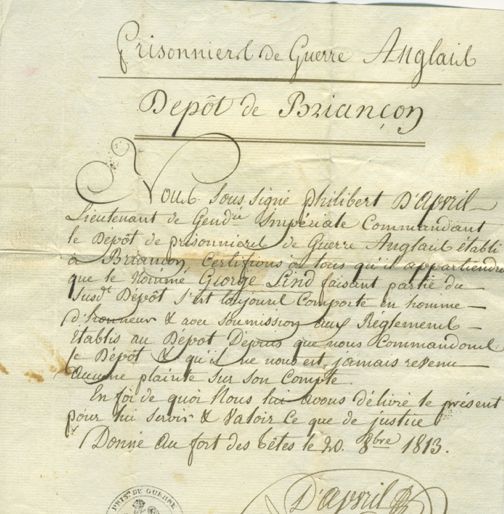 Prisonniers de Guerre Anglais
Depôt de Briançon
Nous sous signé Philibert D'april
Lieutenant de Gend.rie Impériale Commandant
le Depôt de prisonniers de Guerre Anglais établi
à Briançon Certifions à tous qu'il appartiendra
que le Nommé George Lind faisant partie du
Susd.t Dépôt S'est toujours Comporté en homme
d'honneur & avec soumission aux Réglemens
établis au Depôt Depuis que nous Commandons
le Depôt & qu'il ne nous est jamais revenu
aucune plainte Sur Son Compte.
En foi de quoi Nous lui avons délivré le présent
pour lui servir & Valoir ce que de justice
Donné au fort des têtes le 20. 8bre 1813.
D'april
PRIS. DE GUERRE